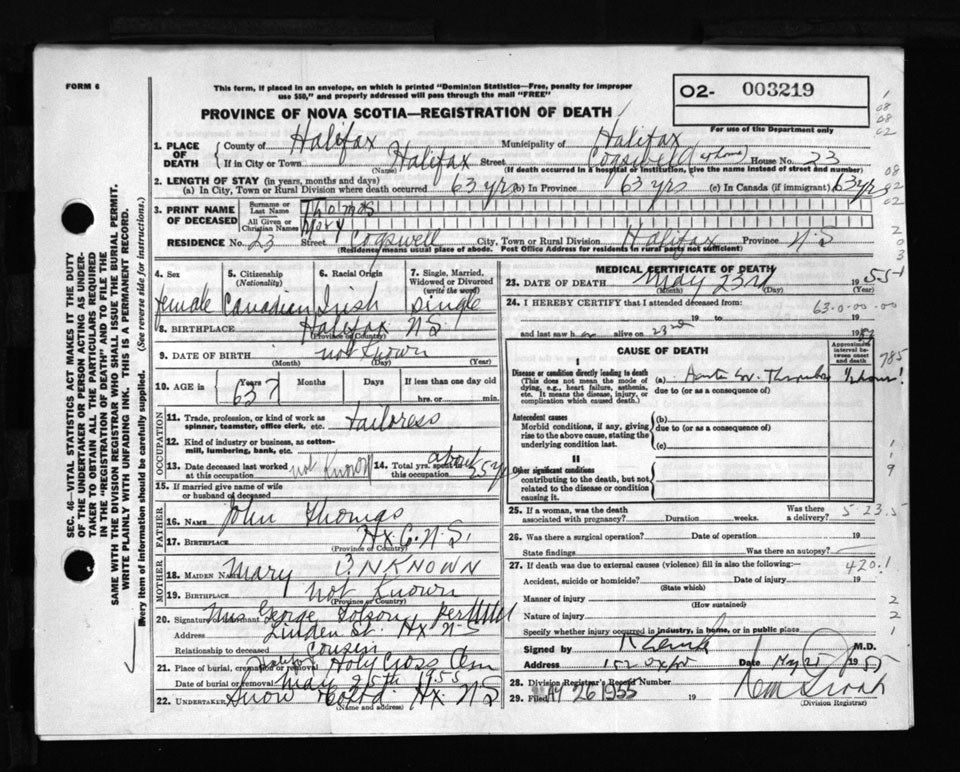 FORM 6
This form, if placed in an envelope, on which is printed "Dominion Statistics—Free, penalty for improper
use $50," and properly addressed will pass through the mail "FREE"
02- 003219
PROVINCE OF NOVA SCOTIA—REGISTRATION OF DEATH
For use of the Department only
1. PLACE OF DEATH
County of Halifax Municipality of Halifax
If in City or Town Halifax Street Cogswell (at home) House No. 23
(Name) (If death occurred in a hospital or institution, give the name instead of street and number)
2. LENGTH OF STAY (in years, months and days)
(a) In City, Town or Rural Division where death occurred 63 yrs (b) In Province 63 yrs (c) In Canada (if immigrant) 63 yrs
3. PRINT NAME OF DECEASED
Surname or Last Name Thomas
All Given or Christian Names Mary
RESIDENCE No. 23 Street Cogswell City, Town or Rural Division Halifax Province N.S
(Residence means usual place of abode. Post Office Address for residents in rural parts not sufficient)
4. Sex female
5. Citizenship (Nationality) Canadian
6. Racial Origin Irish
7. Single, Married, Widowed or Divorced (write the word) Single
8. BIRTHPLACE Halifax N.S.
(Province or Country)
9. DATE OF BIRTH not known
(Month) (Day) (Year)
10. AGE in Years 63 ? Months Days If less than one day old
hrs. or min.
OCCUPATION
11. Trade, profession, or kind of work as spinner, teamster, office clerk, etc. tailoress
12. Kind of industry or business, as cotton-mill, lumbering, bank, etc.
13. Date deceased last worked at this occupation not known
14. Total yrs. spent in this occupation about 35 yrs
15. If married give name of wife or husband of deceased
FATHER
16. NAME John Thomas
17. BIRTHPLACE Hx. C. N.S.
(Province or Country)
MOTHER
18. MAIDEN NAME Mary UNKNOWN
19. BIRTHPLACE not known
(Province or Country)
20. Signature of informant Mrs George
Address Linden St. Hx N.S
Relationship to deceased Cousin
21. Place of burial, cremation or removal Halifax Holy Cross Cem
Date of burial or removal May 25th 1955
22. UNDERTAKER Snow Co Ltd. Hx. N.S
(Name and address)
MEDICAL CERTIFICATE OF DEATH
23. DATE OF DEATH May 23rd 1955
(Month) (Day) (Year)
24. I HEREBY CERTIFY that I attended deceased from:
63-0-00-00
19 to 19
and last saw h alive on 23rd 19
CAUSE OF DEATH
Approximate interval between onset and death
785
I
Disease or condition directly leading to death
(This does not mean the mode of dying, e.g., heart failure, asthenia, etc. It means the disease, injury, or complication which caused death.)
(a) 1/2 hour
due to (or as a consequence of)
Antecedent causes
Morbid conditions, if any, giving rise to the above cause, stating the underlying condition last.
(b)
due to (or as a consequence of)
(c)
II
Other significant conditions
contributing to the death, but not related to the disease or condition causing it.
25. If a woman, was the death associated with pregnancy? Duration weeks. Was there a delivery?
5-23.5
26. Was there a surgical operation? Date of operation 19
State findings Was there an autopsy?
27. If death was due to external causes (violence) fill in also the following:—
420.1
Accident, suicide or homicide? Date of injury 19
(State which)
Manner of injury
(How sustained)
Nature of injury
Specify whether injury occurred in industry, in home, or in public place
Signed by M.D.
Address 152 Oxford Date May 25 1955
28. Division Registrar's Record Number
29. Filed MAY 26 1955 19
(Division Registrar)
SEC. 46—VITAL STATISTICS ACT MAKES IT THE DUTY
OF THE UNDERTAKER OR PERSON ACTING AS UNDER-
TAKER TO OBTAIN ALL THE PARTICULARS REQUIRED
IN THE "REGISTRATION OF DEATH" AND TO FILE THE
SAME WITH THE DIVISION REGISTRAR WHO SHALL ISSUE THE BURIAL PERMIT.
WRITE PLAINLY WITH UNFADING INK. THIS IS A PERMANENT RECORD.
Every item of information should be carefully supplied. (See reverse side for instructions.)